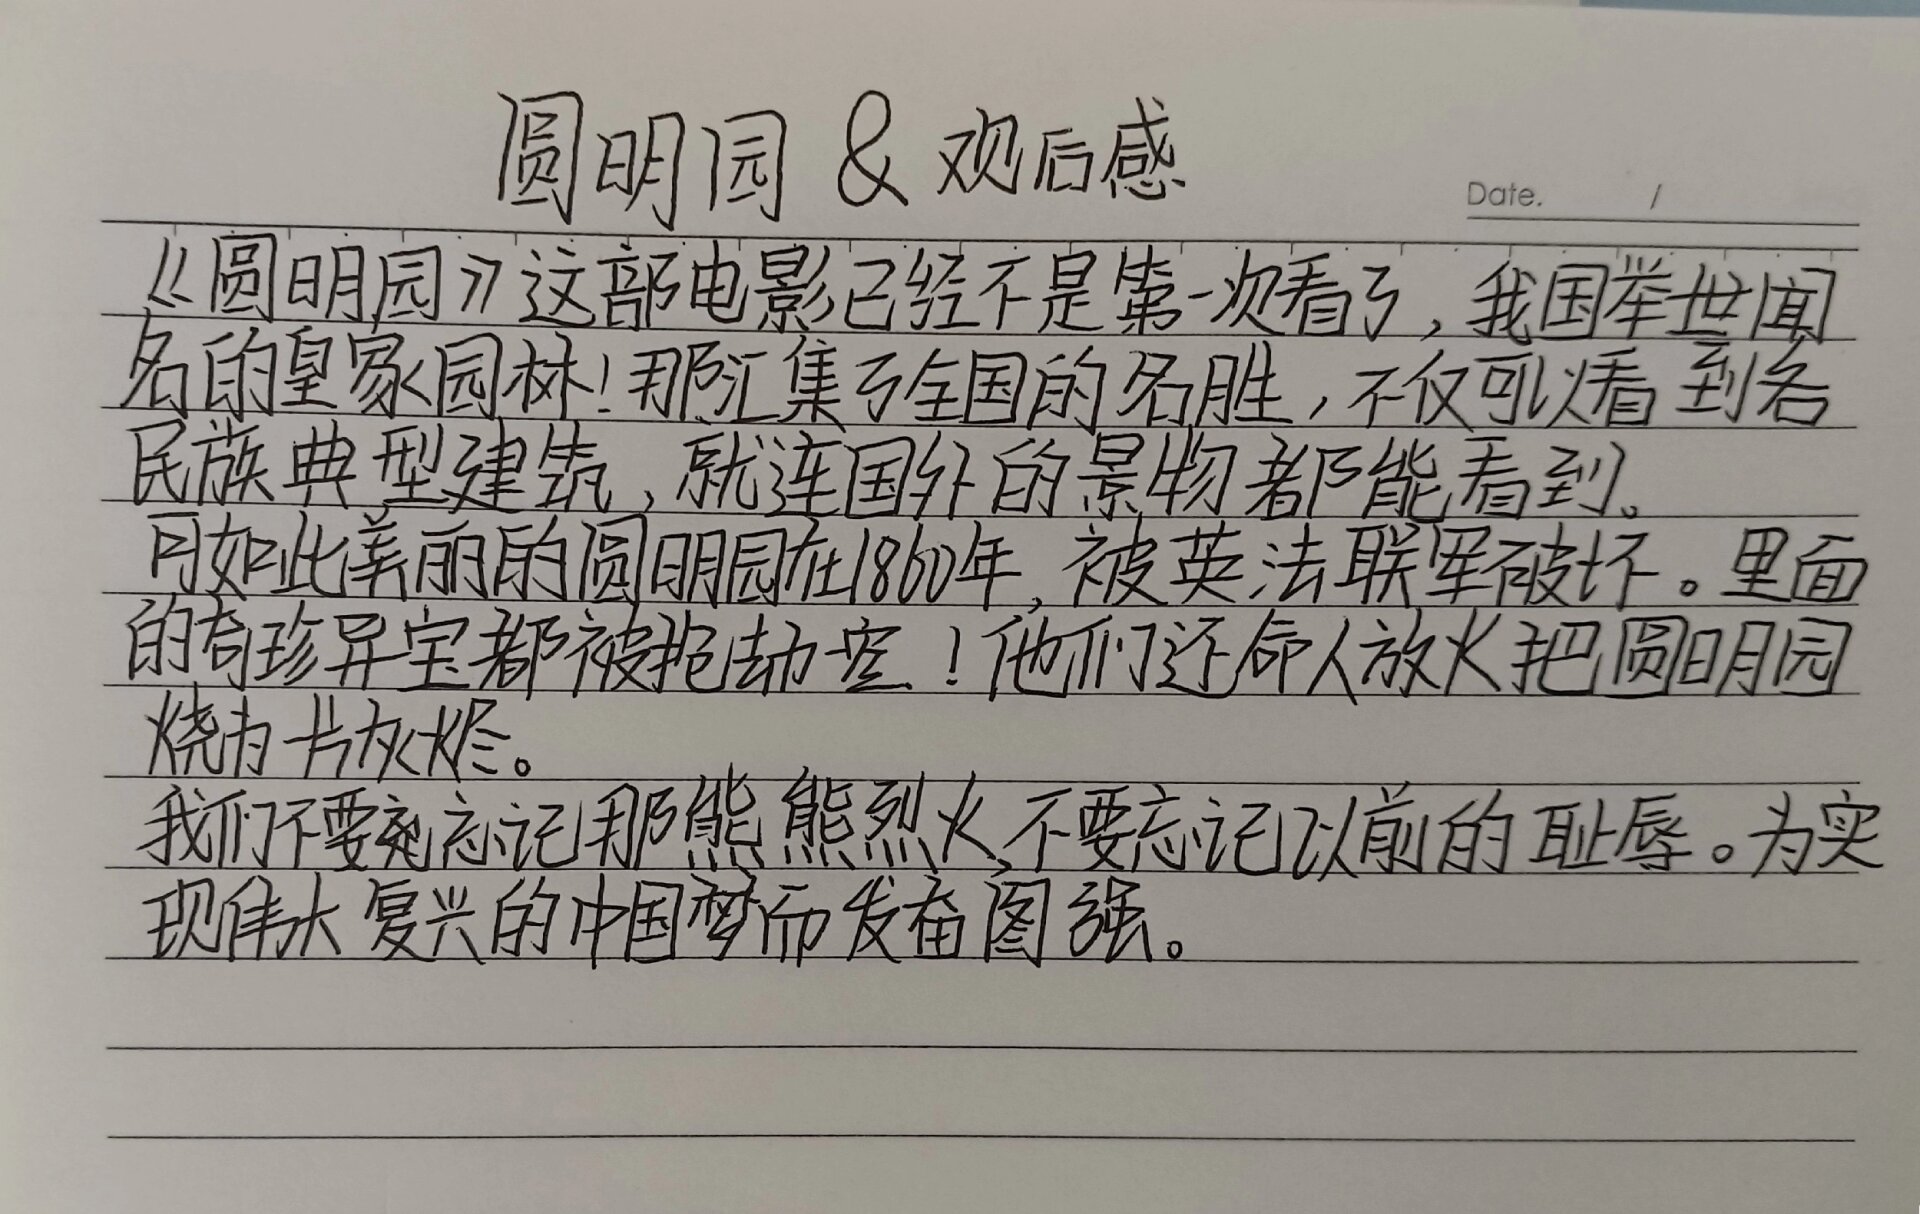 圆明园 & 观后感
Date. /
《圆明园》这部电影已经不是第一次看了，我国举世闻
名的皇家园林！那汇集了全国的名胜，不仅可以看到各
民族典型建筑，就连国外的景物都能看到。
可如此美丽的圆明园在1860年，被英法联军破坏。里面
的奇珍异宝都被抢劫一空！他们还命人放火把圆明园
烧为一片灰烬。
我们不要忘记那熊熊烈火，不要忘记以前的耻辱。为实
现伟大复兴的中国梦而发奋图强。